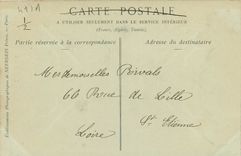 CARTE POSTALE
A UTILISER SEULEMENT DANS LE SERVICE INTÉRIEUR
(France, Algérie, Tunisie)
Partie réservée à la correspondance
Adresse du destinataire
1/2
Mesdemoiselles
66 Rue de Lille
St Etienne
Loire
Etablissements Photographiques de NEURDEIN Frères, Paris